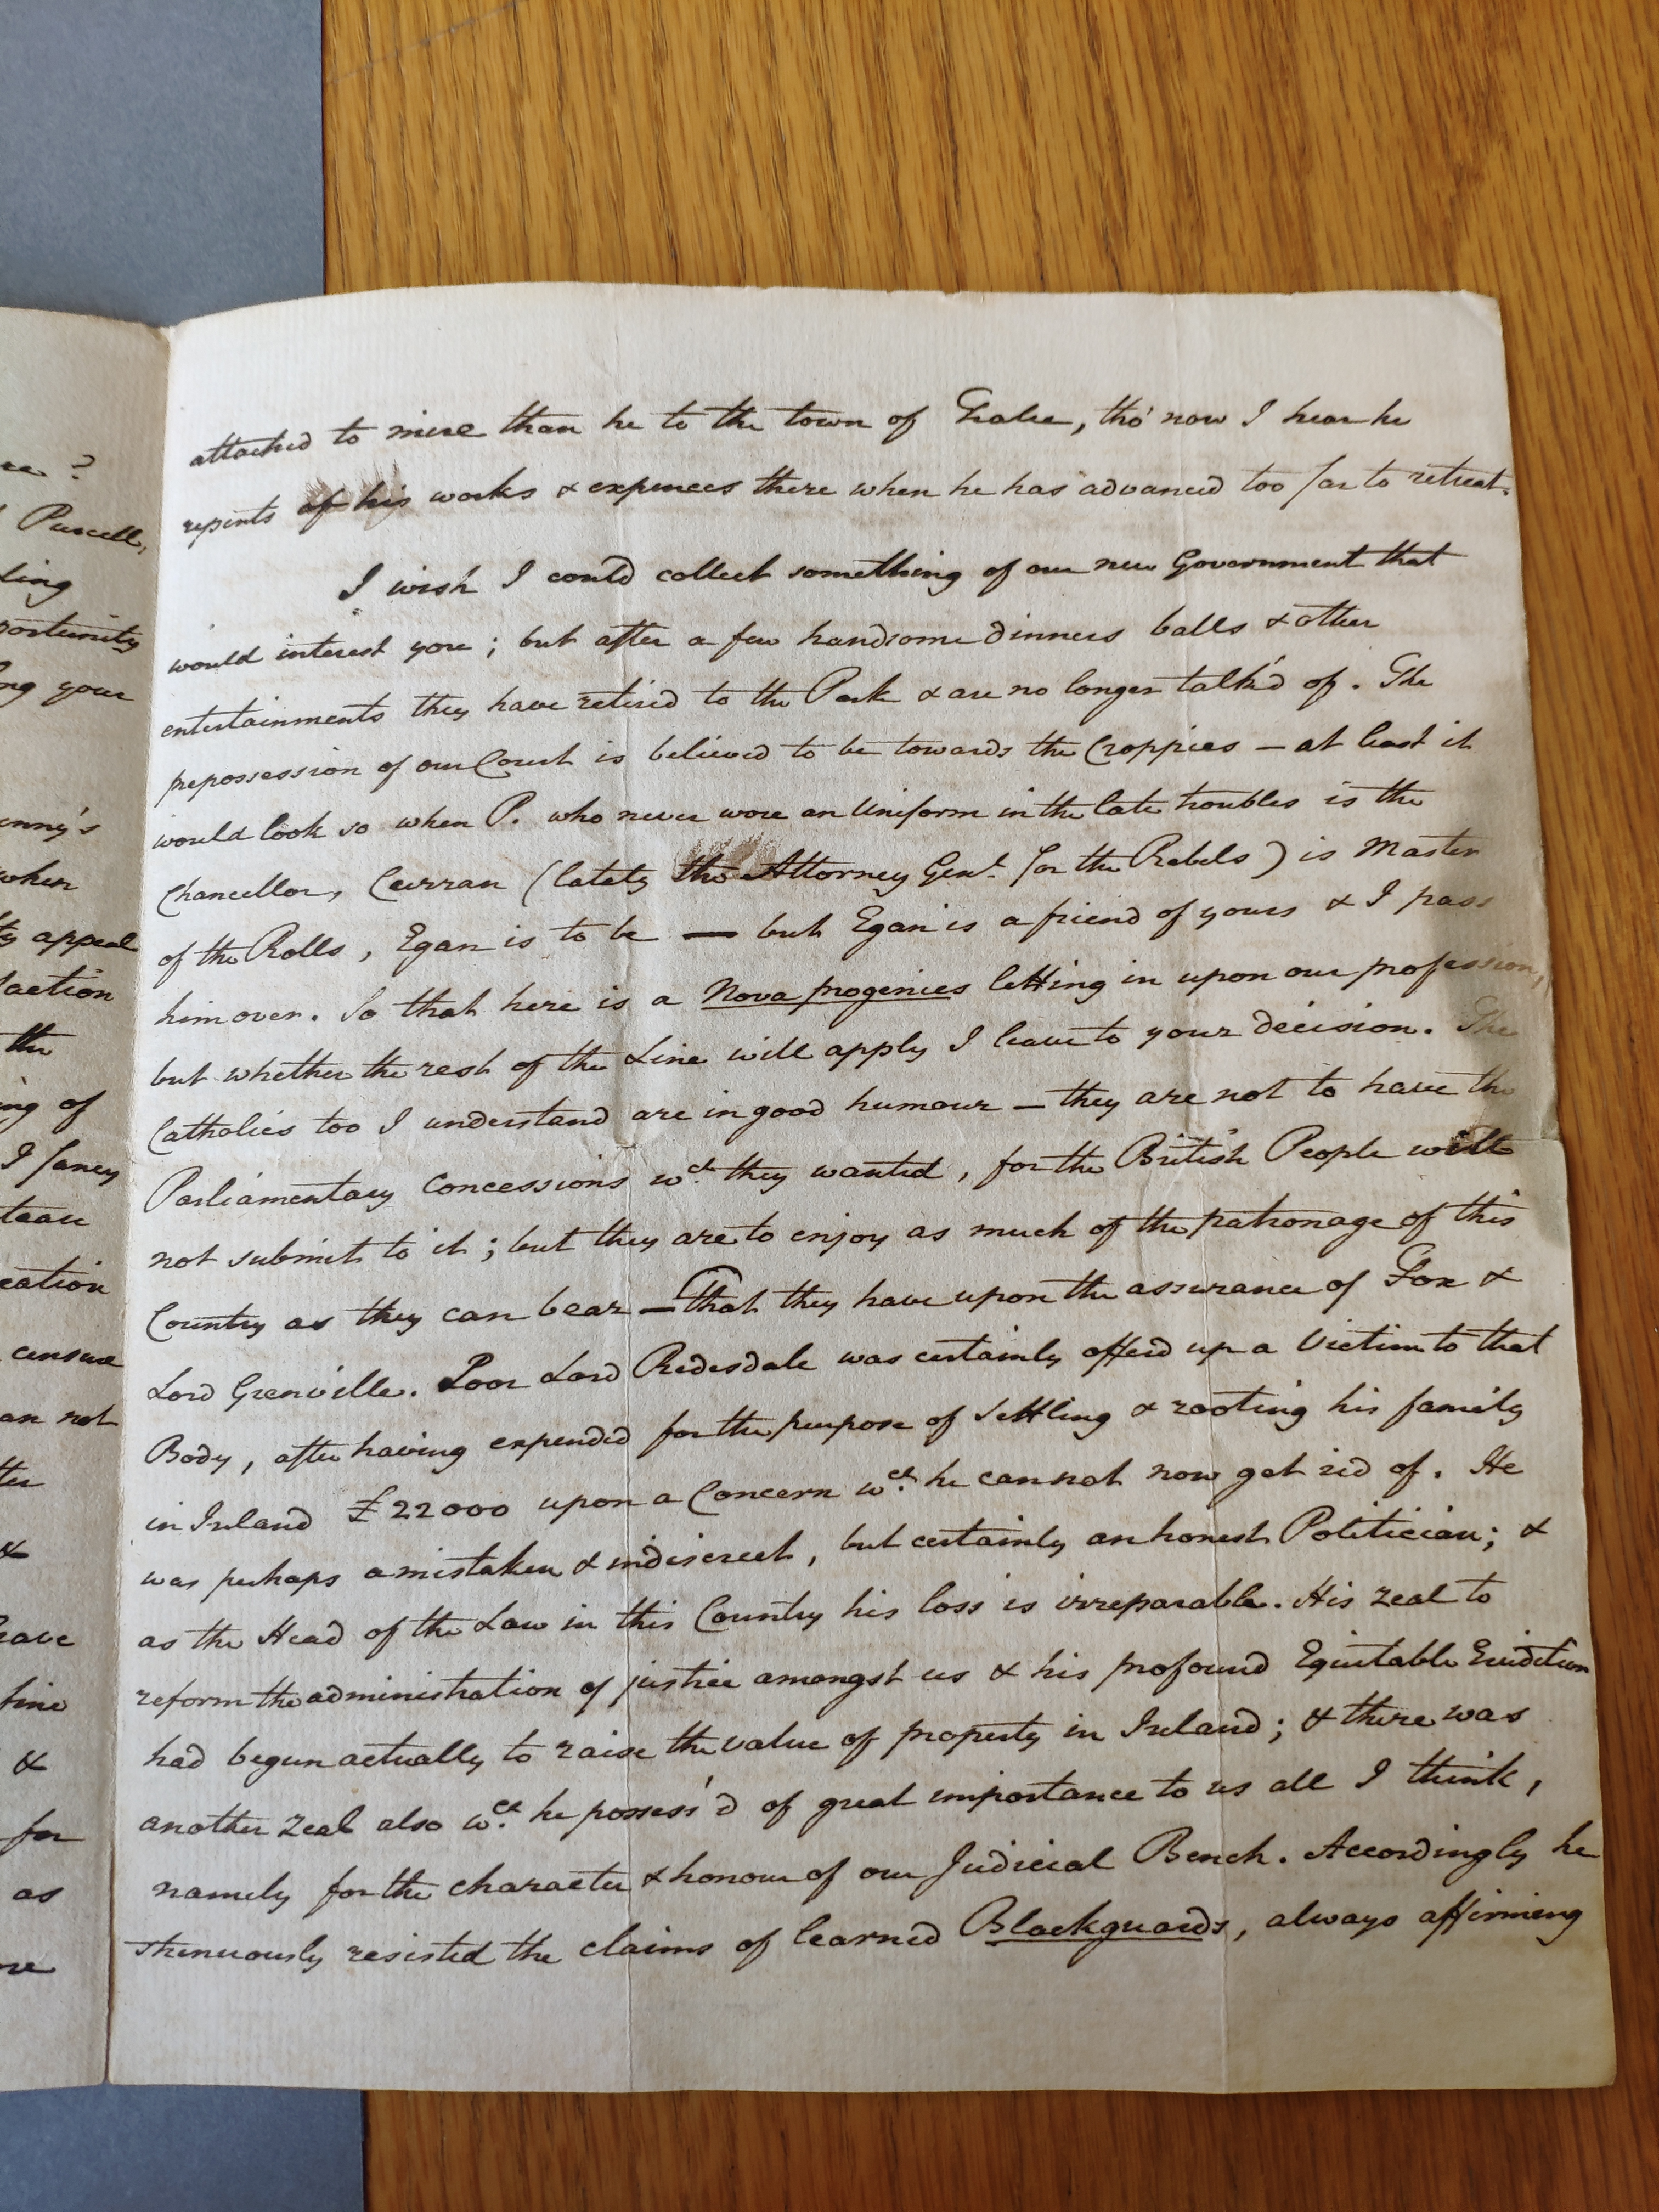 re ?
Purcell,
ling
portunity
ng your
enny's
when
ty appeal
faction
the
ing of
I fancy
cation
censure
an not
&
have
line
&
for
as
attached to mine than he to the town of Tralee, tho' now I hear he
repents of his works & expences there when he has advanced too far to retreat.
I wish I could collect something of our new Government that
would interest you ; but after a few handsome dinners balls & other
entertainments they have retired to the Park & are no longer talk'd of . The
prepossession of our Court is believed to be towards the Croppies – at least it
would look so when P. who never wore an Uniform in the late troubles is the
Chancellor, Curran (lately the Attorney Genl. for the Rebels) is Master
of the Rolls , Egan is to be — but Egan is a friend of yours & I pass
him over . So that here is a Nova progenies letting in upon our profession,
but whether the rest of the Line will apply I leave to your decision . The
Catholics too I understand are in good humour – they are not to have the
Parliamentary Concessions wch. they wanted , for the British People will
not submit to it ; but they are to enjoy as much of the patronage of this
Country as they can bear – That they have upon the assurance of Fox &
Lord Grenville . Poor Lord Redesdale was certainly offerd up a Victim to that
Body , after having expended for the purpose of settling & rooting his family
in Ireland £22000 upon a Concern wch. he can not now get rid of . He
was perhaps a mistaken & indiscreet , but certainly an honest Politician ; &
as the Head of the Law in this Country his loss is irreparable . His zeal to
reform the administration of justice amongst us & his profound Equitable Erudition
had begun actually to raise the value of property in Ireland ; & there was
another Zeal also wch. he possess'd of great importance to us all I think ,
namely for the character & honour of our Judicial Bench . Accordingly he
strenuously resisted the claims of learned Blackguards , always affirming